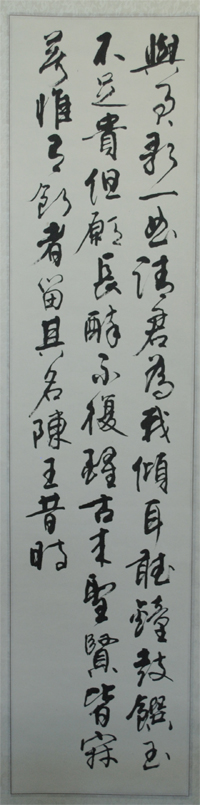 與君歌一曲請君為我傾耳聽鐘鼓饌玉
不足貴但願長醉不復醒古來聖賢皆寂
寞惟有飲者留其名陳王昔時